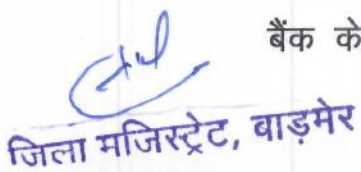 बैंक के
जिला मजिस्ट्रेट, बाड़मेर